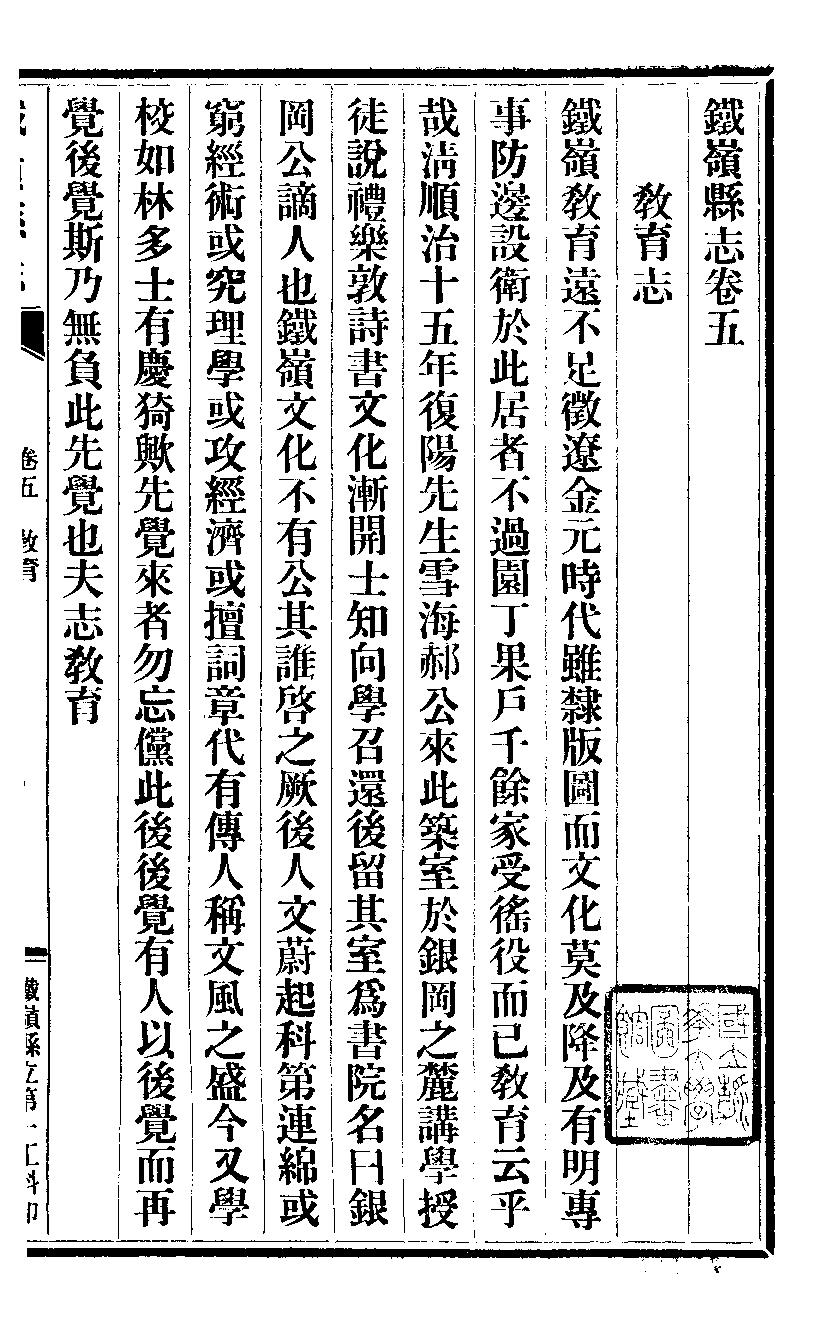 鐵嶺縣志卷五
教育志
鐵嶺教育遠不足徵遼金元時代雖隸版圖而文化莫及降及有明專
事防邊設衛於此居者不過園丁果戶千餘家受徭役而已教育云乎
哉淸順治十五年復陽先生雪海郝公來此築室於銀岡之麓講學授
徒說禮樂敦詩書文化漸開士知向學召還後留其室爲書院名曰銀
岡公謫人也鐵嶺文化不有公其誰啓之厥後人文蔚起科第連綿或
窮經術或究理學或攻經濟或擅詞章代有傳人稱文風之盛今又學
校如林多士有慶猗歟先覺來者勿忘儻此後後覺有人以後覺而再
覺後覺斯乃無負此先覺也夫志教育
卷五 教育
一
鐵嶺縣立第一工科印
國立
大學
圖書
館藏